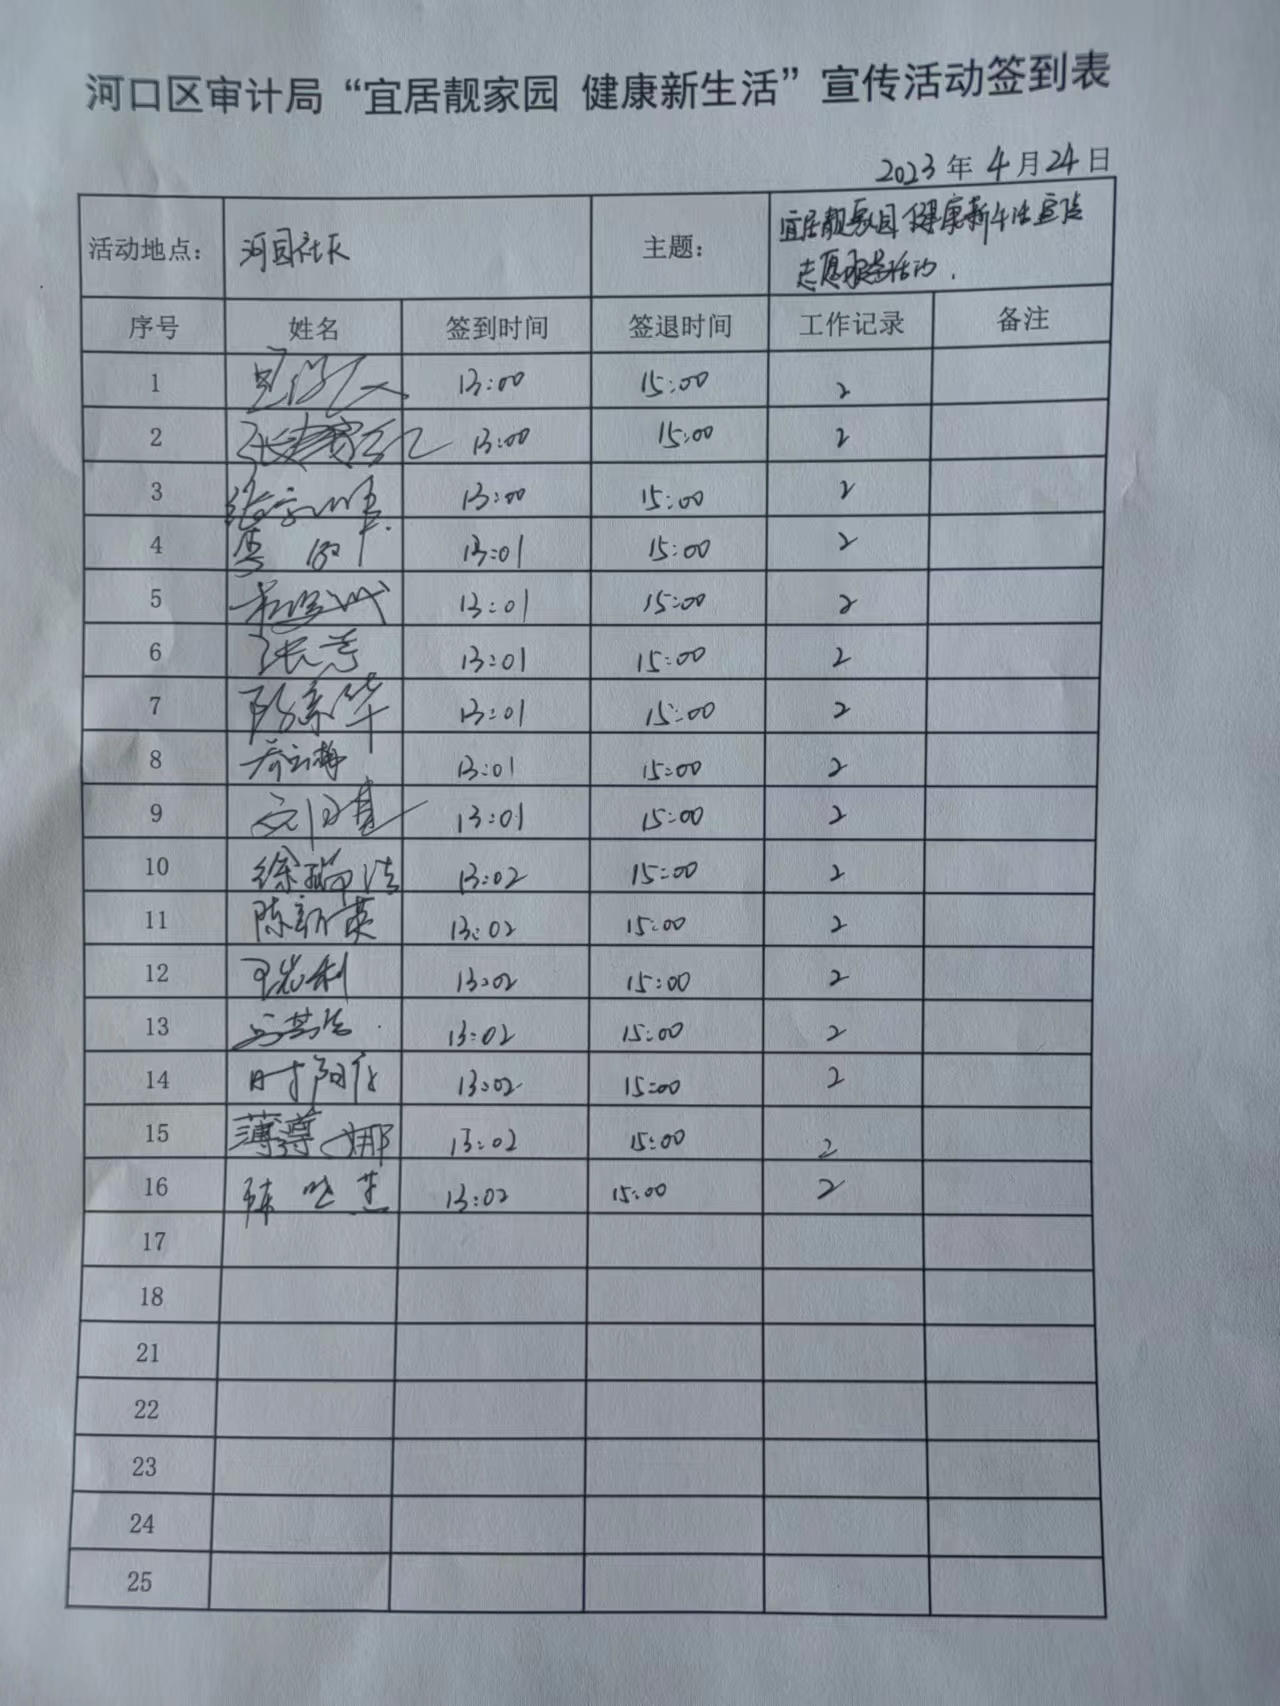 河口区审计局“宜居靓家园 健康新生活”宣传活动签到表
2023年4月24日
活动地点： 河园社区 主题： 宜居靓家园健康新生活宣传
志愿服务活动.
序号 姓名 签到时间 签退时间 工作记录 备注
1 13:00 15:00 2
2 13:00 15:00 2
3 13:00 15:00 2
4 13:01 15:00 2
5 13:01 15:00 2
6 张芳 13:01 15:00 2
7 13:01 15:00 2
8 13:01 15:00 2
9 13:01 15:00 2
10 徐瑞洁 13:02 15:00 2
11 陈新英 13:02 15:00 2
12 王岩利 13:02 15:00 2
13 13:02 15:00 2
14 13:02 15:00 2
15 薄尊娜 13:02 15:00 2
16 13:02 15:00 2
17
18
21
22
23
24
25